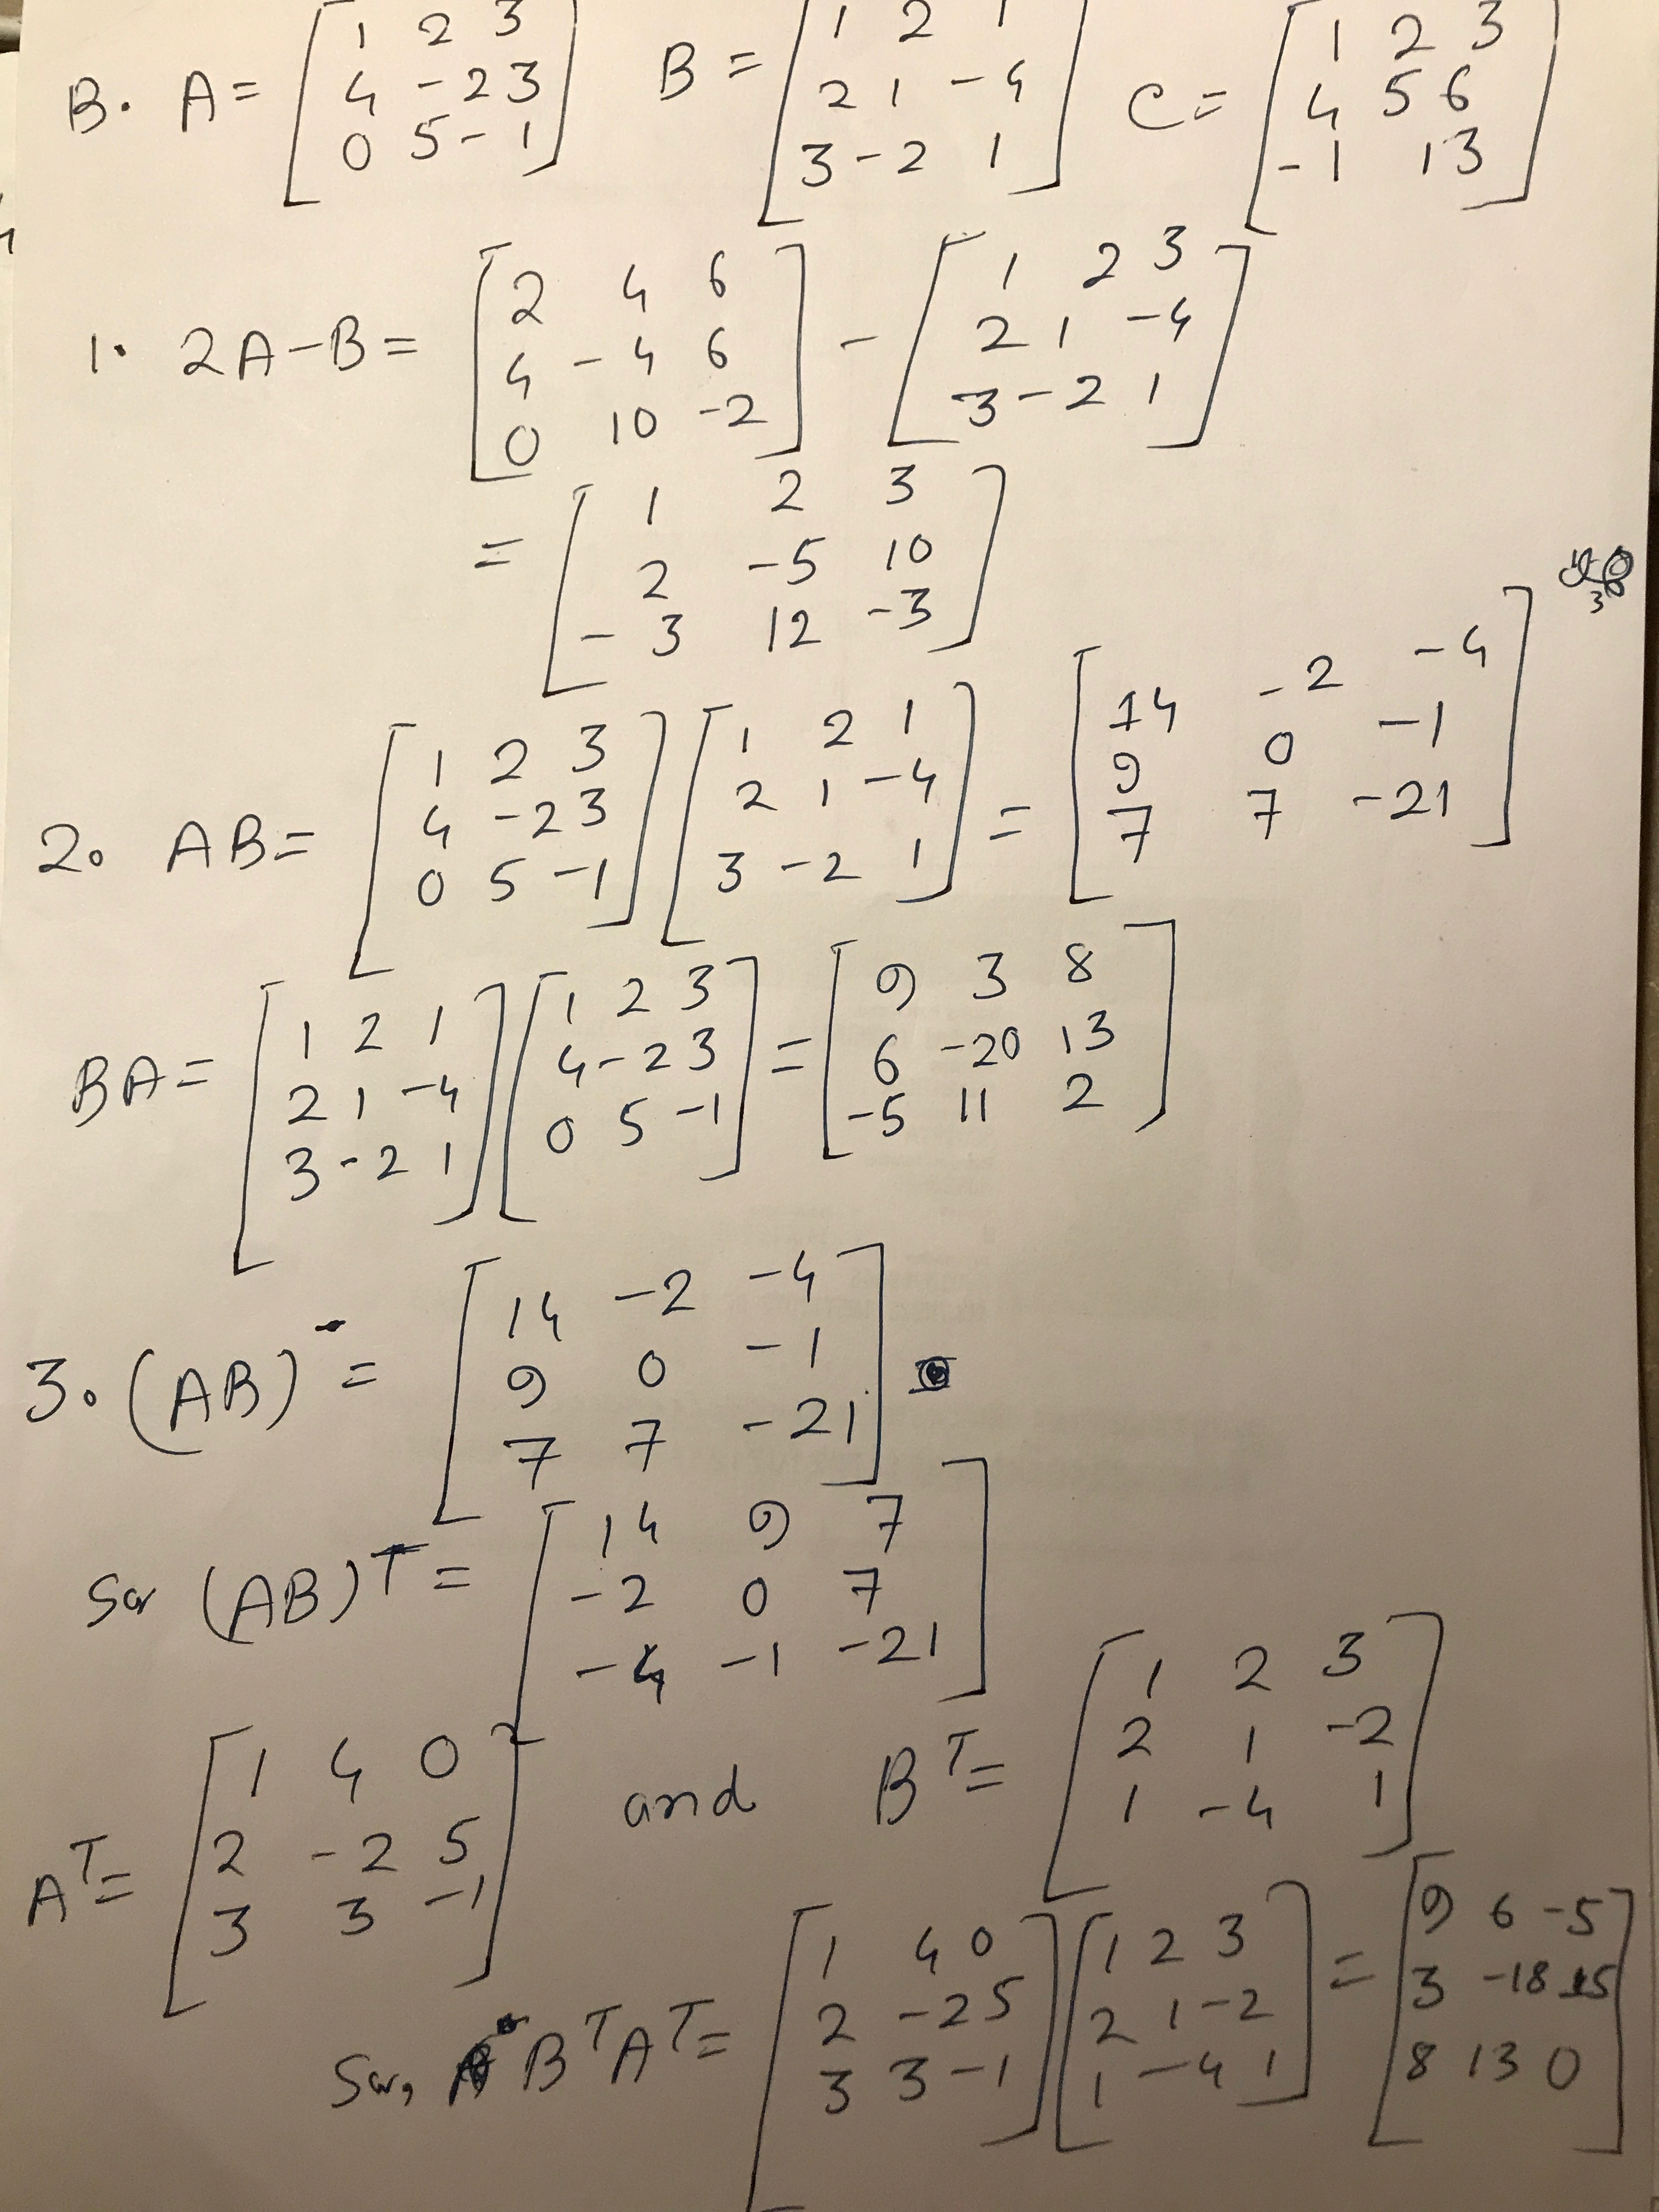 B. A = [1 2 3; 4 -2 3; 0 5 -1] B = [1 2 1; 2 1 -4; 3 -2 1] C = [1 2 3; 4 5 6; -1 1 3]
1. 2A-B = [2 4 6; 4 -4 6; 0 10 -2] - [1 2 3; 2 1 -4; 3 -2 1]
= [1 2 3; 2 -5 10; -3 12 -3]
2. AB = [1 2 3; 4 -2 3; 0 5 -1] [1 2 1; 2 1 -4; 3 -2 1] = [14 -2 -4; 9 0 -1; 7 7 -21]
BA = [1 2 1; 2 1 -4; 3 -2 1] [1 2 3; 4 -2 3; 0 5 -1] = [9 3 8; 6 -20 13; -5 11 2]
3. (AB) = [14 -2 -4; 9 0 -1; 7 7 -21]
So, (AB)ᵀ = [14 9 7; -2 0 7; -4 -1 -21]
Aᵀ = [1 4 0; 2 -2 5; 3 3 -1] and Bᵀ = [1 2 3; 2 1 -2; 1 -4 1]
So, BᵀAᵀ = [1 4 0; 2 -2 5; 3 3 -1] [1 2 3; 2 1 -2; 1 -4 1] = [9 6 -5; 3 -18 15; 8 13 0]